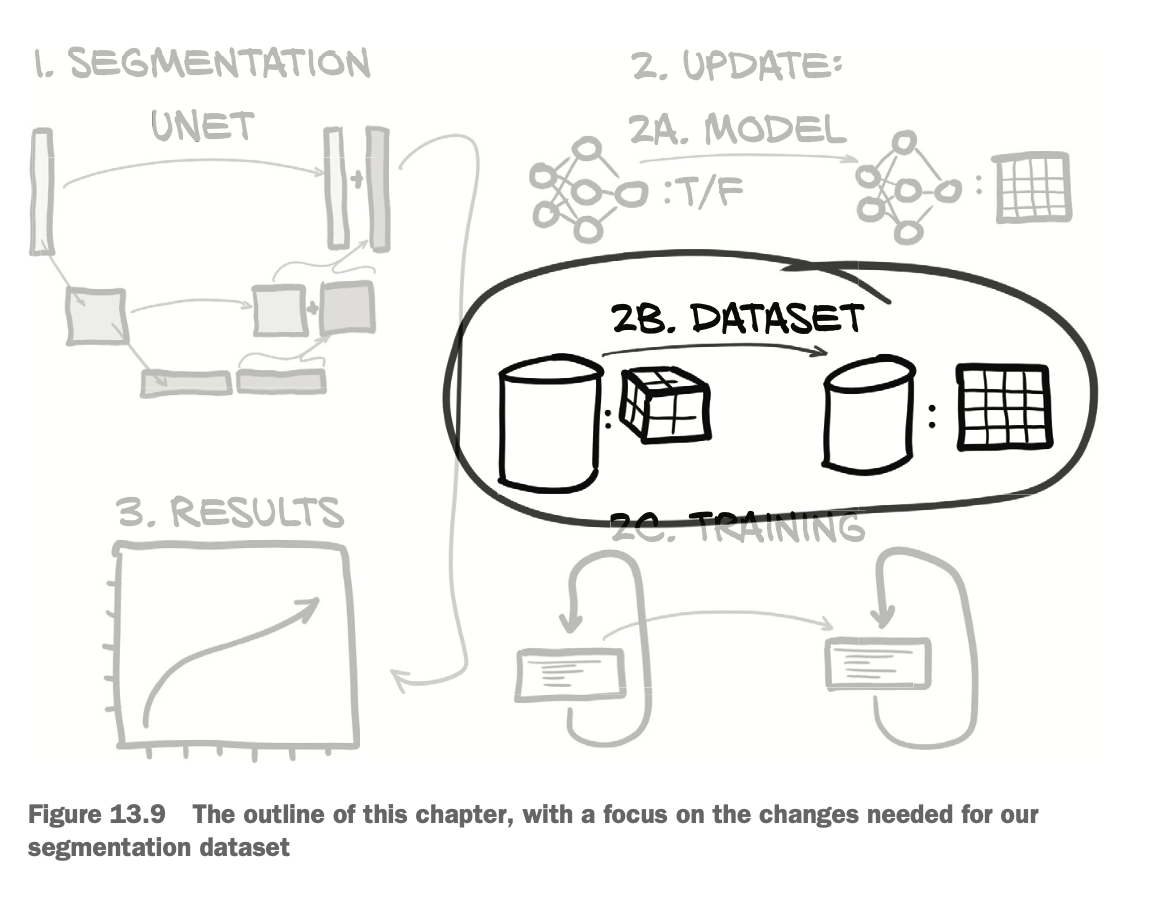 1. SEGMENTATION
UNET
+
+
2. UPDATE:
2A. MODEL
:T/F
:
2B. DATASET
:
:
2C. TRAINING
3. RESULTS
Figure 13.9 The outline of this chapter, with a focus on the changes needed for our
segmentation dataset